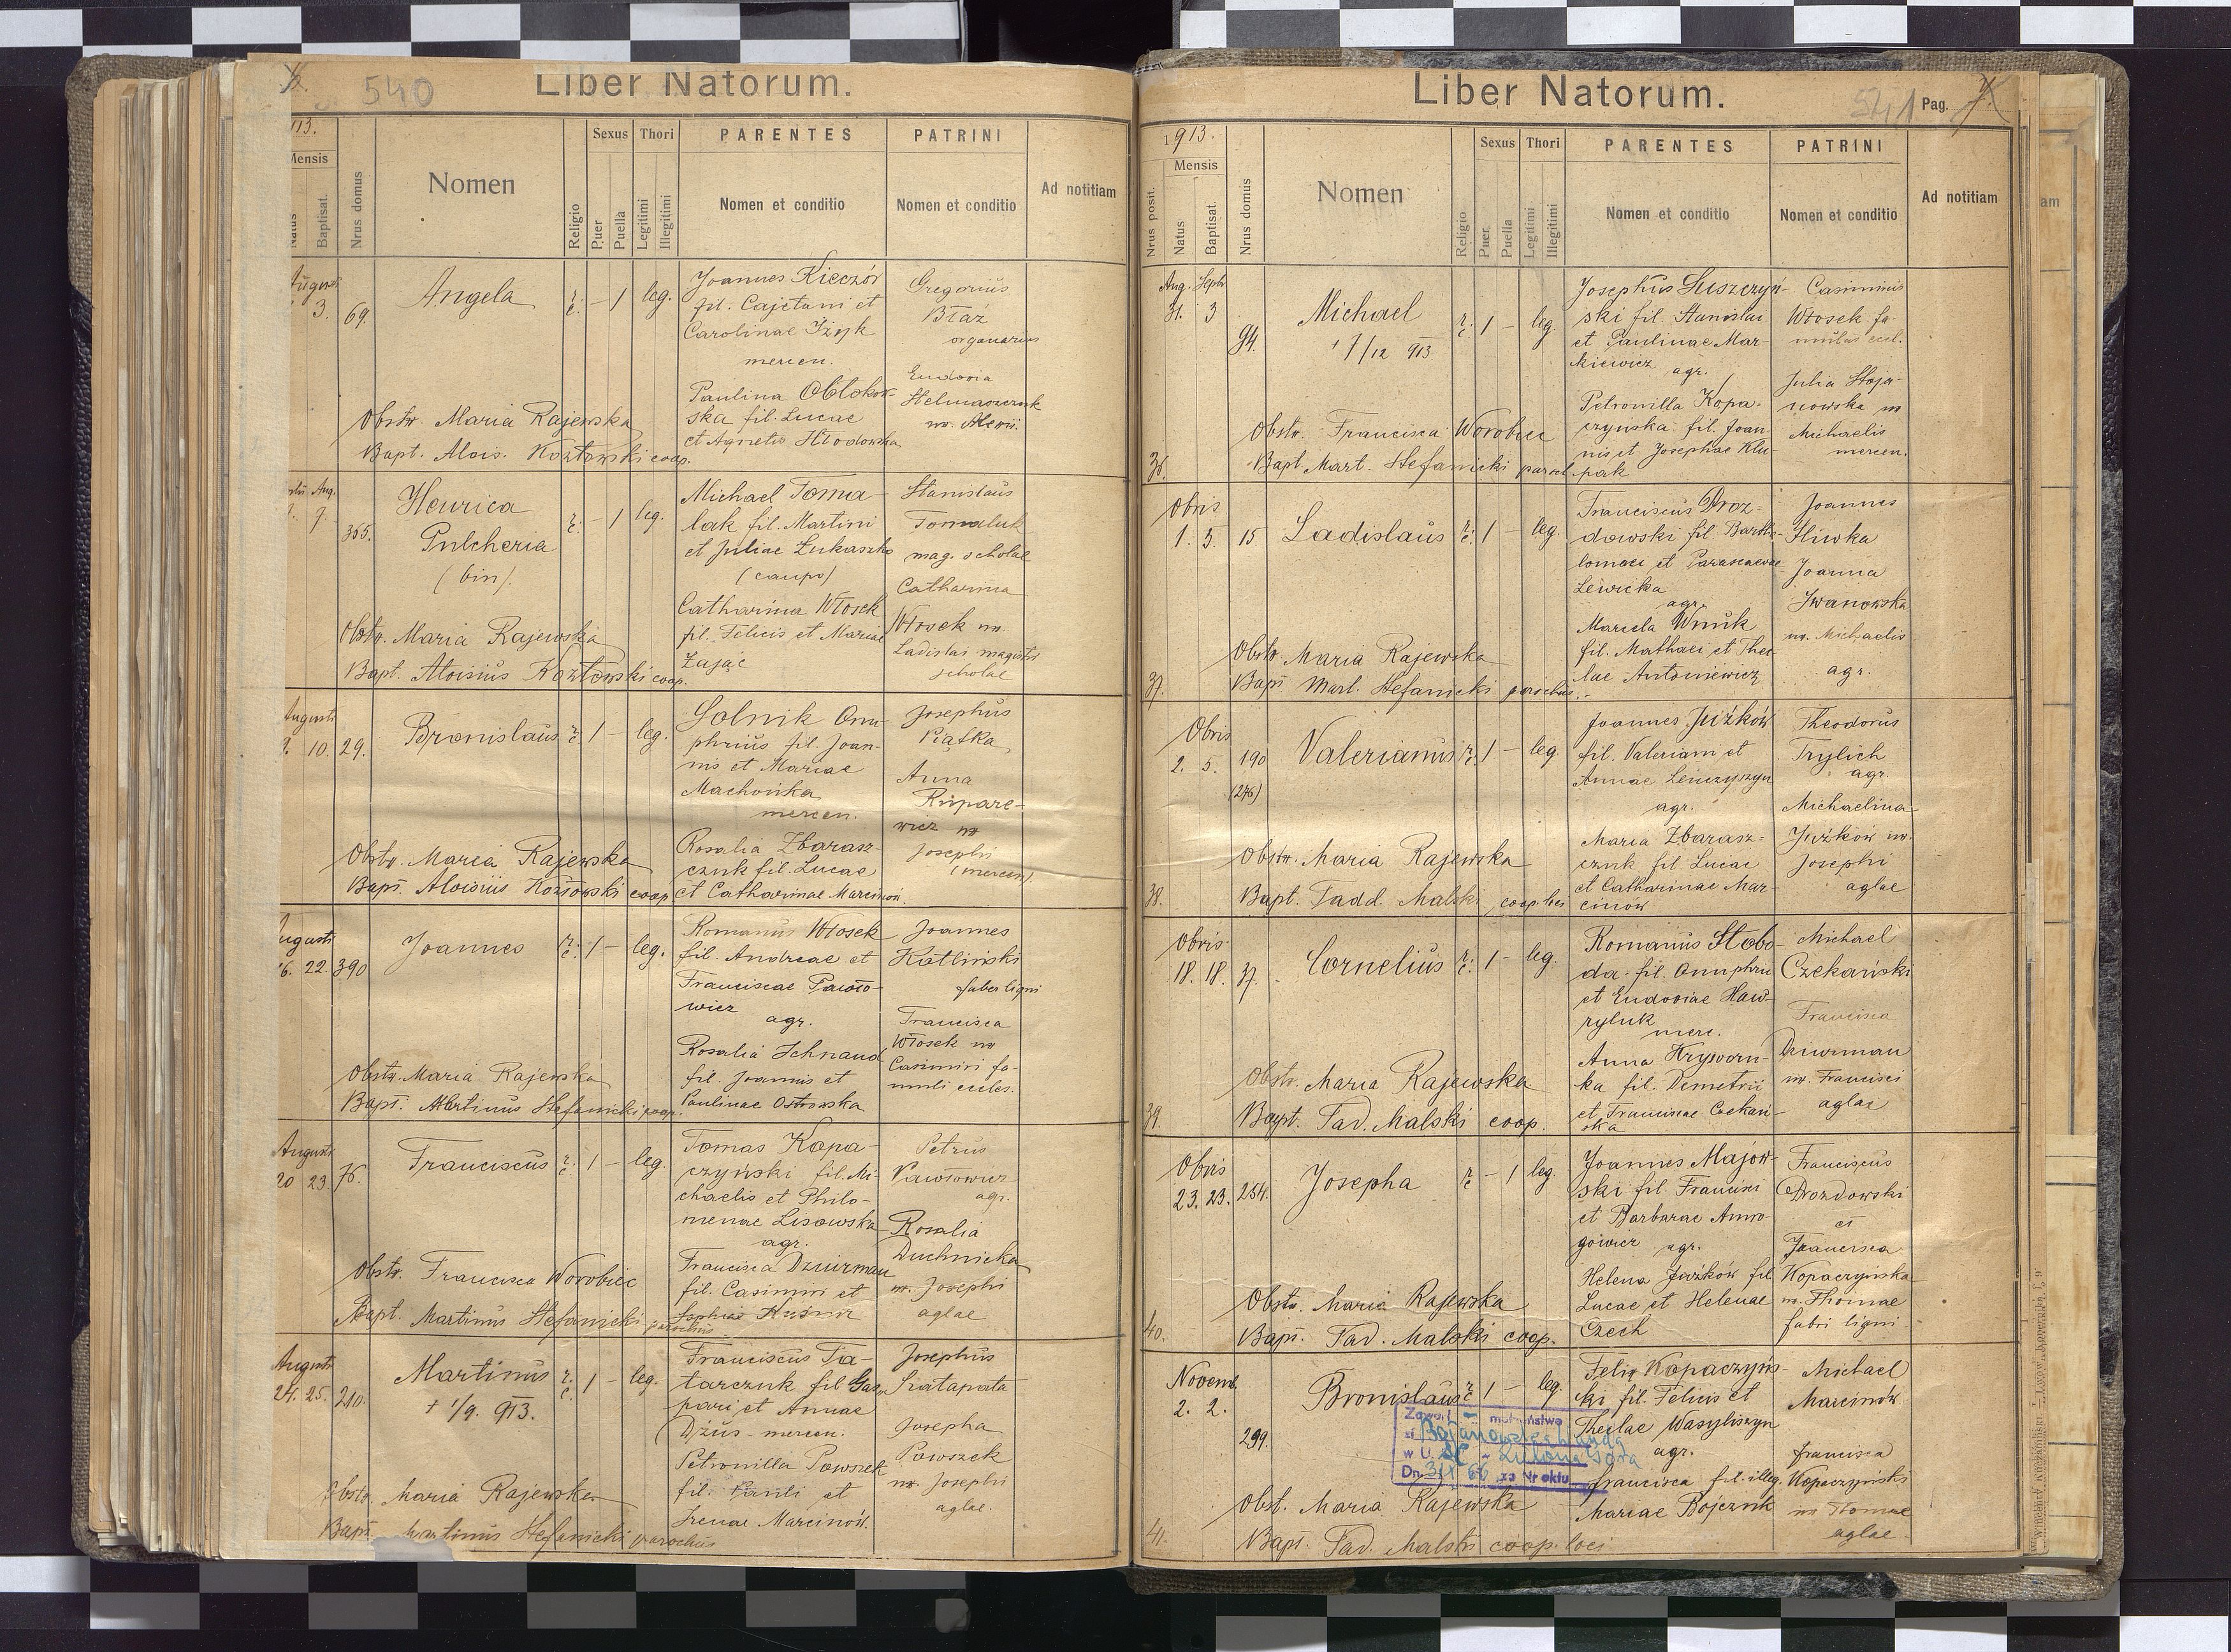 540
Liber Natorum.
113.
Mensis
Natus
Baptisat.
Nrus domus
Nomen
Religio
Sexus
Puer
Puella
Thori
Legitimi
Illegitimi
PARENTES
Nomen et conditio
PATRINI
Nomen et conditio
Ad notitiam
Augusti
3. 69.
Angela
r. c. – 1 leg.
Joannes Kieczór
fil. Cajetani et
Carolinae Iżyk
mercen.
Paulina Obłokow-
ska fil. Lucae
et Agnetis Hłodowska
Gregorius
Błaż
organarius
Eudoxia
Helmaszczuk
ux. Alexii
Obstr. Maria Rajewska
Bapt. Alois. Kozłowski coop.
Aug.
7. 365.
Henrica
Pulcheria
(bin).
r. c. – 1 leg.
Michael Toma-
lak fil. Martini
et Juliae Łukaszko
(caupo)
Catharina Włosek
fil. Felicis et Mariae
Zając
Stanislaus
Tomaluk
mag. scholae
Catharina
Włosek ux.
Ladislai magistri
scholae
Obstr. Maria Rajewska
Bapt. Aloisius Kozłowski coop.
Augusti
10. 29.
Bronislaus
r. c. 1 – leg.
Solnik Onu-
phrius fil. Joan-
nis et Mariae
Machońka
mercen.
Rosalia Zbarasz-
czuk fil. Lucae
et Catharinae Marcinów.
Josephus
Piątka
Anna
Rupare-
wicz ux
Josephi
(mercen)
Obstr. Maria Rajewska
Bapt. Aloisius Kozłowski coop
Augusti
16. 22. 390
Joannes
r. c. 1 – leg.
Romanus Włosek
fil. Andreae et
Franciscae Pawło-
wicz
agr.
Rosalia Schnaud
fil. Joannis et
Paulinae Ostrowska
Joannes
Kotliński
faber ligni
Francisca
Włosek ux
Casimiri fa-
muli eccles.
Obstr. Maria Rajewska
Bapt. Martinus Stefanicki
Augusti
20 23. 76.
Franciscus
r. c. 1 – leg.
Tomas Kopa-
czyński fil. Mi-
chaelis et Philo-
menae Lisowska
agr.
Francisca Dziurman
fil. Casimiri et
Sophiae
Petrus
Pawłowicz
agr.
Rosalia
Duchnicka
ux. Josephi
aglae
Obstr. Francisca Worobiec
Bapt. Martinus Stefanicki
parochus
Augusti
24. 25. 210.
Martinus
† 1/9. 913.
r. c. 1 – leg.
Franciscus Ta-
tarczuk fil Gas-
pari et Annae
Dżus mercen.
Petronilla Powszek
fil. Pauli et
Irenae Marcinów.
Josephus
Łatapata
Josepha
Powszek
ux. Josephi
aglae.
Obstr. Maria Rajewska
Bapt. Martinus Stefanicki parochus
Liber Natorum.
541
Pag.
1913.
Nrus posit.
Mensis
Natus
Baptisat.
Nrus domus
Nomen
Religio
Sexus
Puer
Puella
Thori
Legitimi
Illegitimi
PARENTES
Nomen et conditio
PATRINI
Nomen et conditio
Ad notitiam
Aug. Septr.
31. 3 94.
Michael
† 7/12 913.
r. c. 1 – leg.
Josephus Suszczyń-
ski fil. Stanislai
et Paulinae Mar-
kiewicz agr.
Petronilla Kopa-
czyńska fil. Joan-
nis et Josephae Klu-
pak
Casimirus
Włosek fa-
mulus eccl.
Julia Stoja-
nowska ux
Michaelis
mercen.
Obstr. Francisca Worobiec
36. Bapt. Mart. Stefanicki paroch
Obris
1. 5. 15.
Ladislaus
r. c. 1 – leg.
Franciscus Droz-
dowski fil. Bartho-
lomaei et Parascevae
Lewicka
agr.
Marcela Wnuk
fil. Mathaei et Thec-
lae Antoniewicz
Joannes
Śliwka
Joanna
Iwanowska
ux. Michaelis
agr.
Obstr. Maria Rajewska
37. Bapt. Mart. Stefanicki parochus
Obris
2. 5. 190
(276)
Valerianus
r. c. 1 – leg
Joannes Juźków
fil. Valeriani et
Annae Lenczyszyn
agr.
Maria Zbarasz-
czuk fil. Lucae
et Catharinae Mar-
cinów
Theodorus
Trylich
agr.
Michaelina
Juźków ux.
Josephi
aglae
Obstr. Maria Rajewska
38. Bapt. Tadd. Malski coop. loci
Obris
18. 18. 37.
Cornelius
r. c. 1 – leg.
Romanus Słobo-
da fil. Onuphrii
et Eudoxiae Haw-
ryluk merc.
Anna Kryworu-
ka fil. Demetrii
et Franciscae Czekań-
ska
Michael
Czekański
Francisca
Dziurman
ux. Francisci
aglae
Obstr. Maria Rajewska
39. Bapt. Tad. Malski coop.
Obris
23. 23. 254.
Josepha
r. c – 1 leg
Joannes Majow-
ski fil. Francisci
et Barbarae Amro-
gowicz agr.
Helena Juźków fil
Lucae et Helenae
Czech
Franciscus
Drozdowski
et
Francisca
Kopaczyńska
ux. Thomae
fabri ligni
Obstr. Maria Rajewska
40. Bapt. Tad. Malski coop.
Novemb.
2. 2.
299.
Bronislaus
r. c 1 – leg.
Felix Kopaczyńs-
ki fil. Felicis et
Theclae Wasyliszyn
agr.
Francisca fil. illeg.
Mariae Bojczuk
Michael
Marcinów
Francisca
Kopaczyński
ux Thomae
aglae
Zawarł małżeństwo
w U.
Dn. za Nr aktu
Obst. Maria Rajewska
41. Bapt. Tad. Malski coop. loci